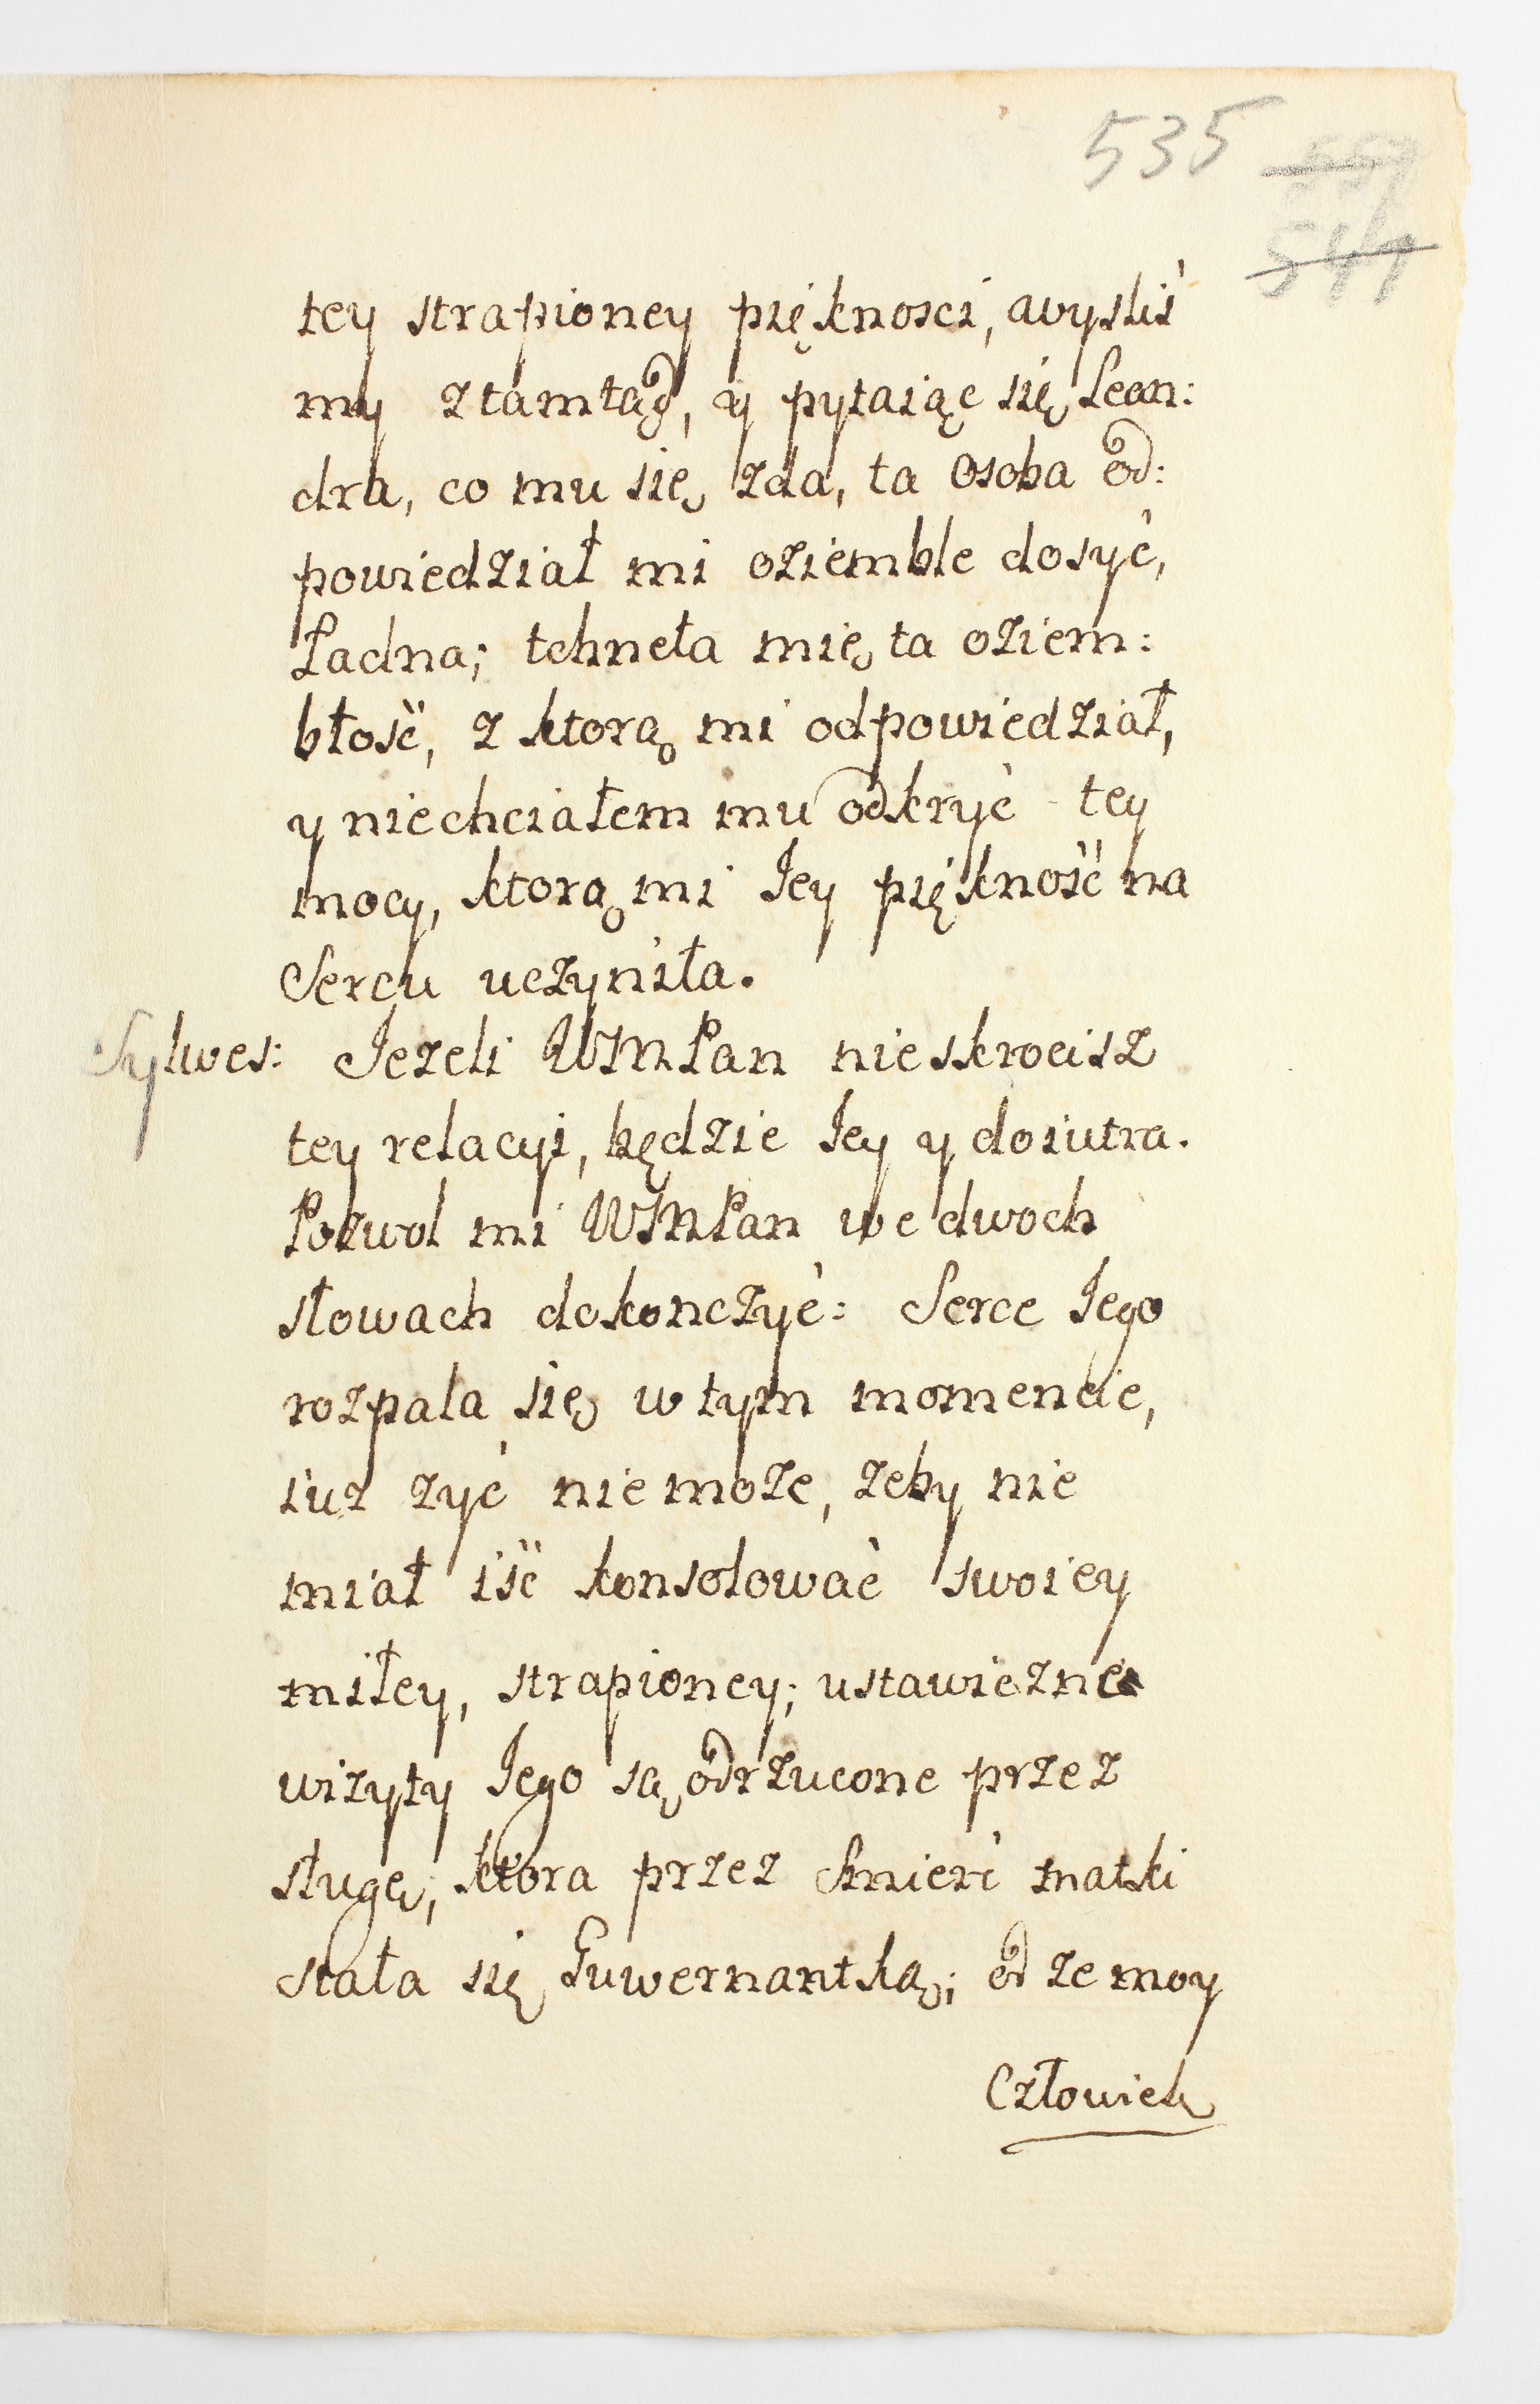 535 557
541
tey strapioney piękności, wyśliś
my ztamtąd, y pytaiąc się Lean:
dra, co mu się zda, ta Osoba od:
powiedział mi oziemble dosyć,
Ładna; tchneła mię ta oziem:
błość, z ktorą mi odpowiedział,
y niechciałem mu odkryć tey
mocy, ktorą mi Jey piękność na
Sercu uczyniła.
Sylwes: Jezeli WMPan nieskrocisz
tey relacyi, będzie Jey y doiutra.
Pozwol mi WMPan we dwoch
słowach dokonczyć: Serce Jego
rozpala się w tym momencie,
iuz zyć niemoze, zeby nie
miał iść konsolować swoiey
miłey, strapioney; ustawiczne
wizyty Jego są odrzucone przez
sługę, ktora przez Smierć matki
stała się Guwernantką; od ze moy
Człowiek